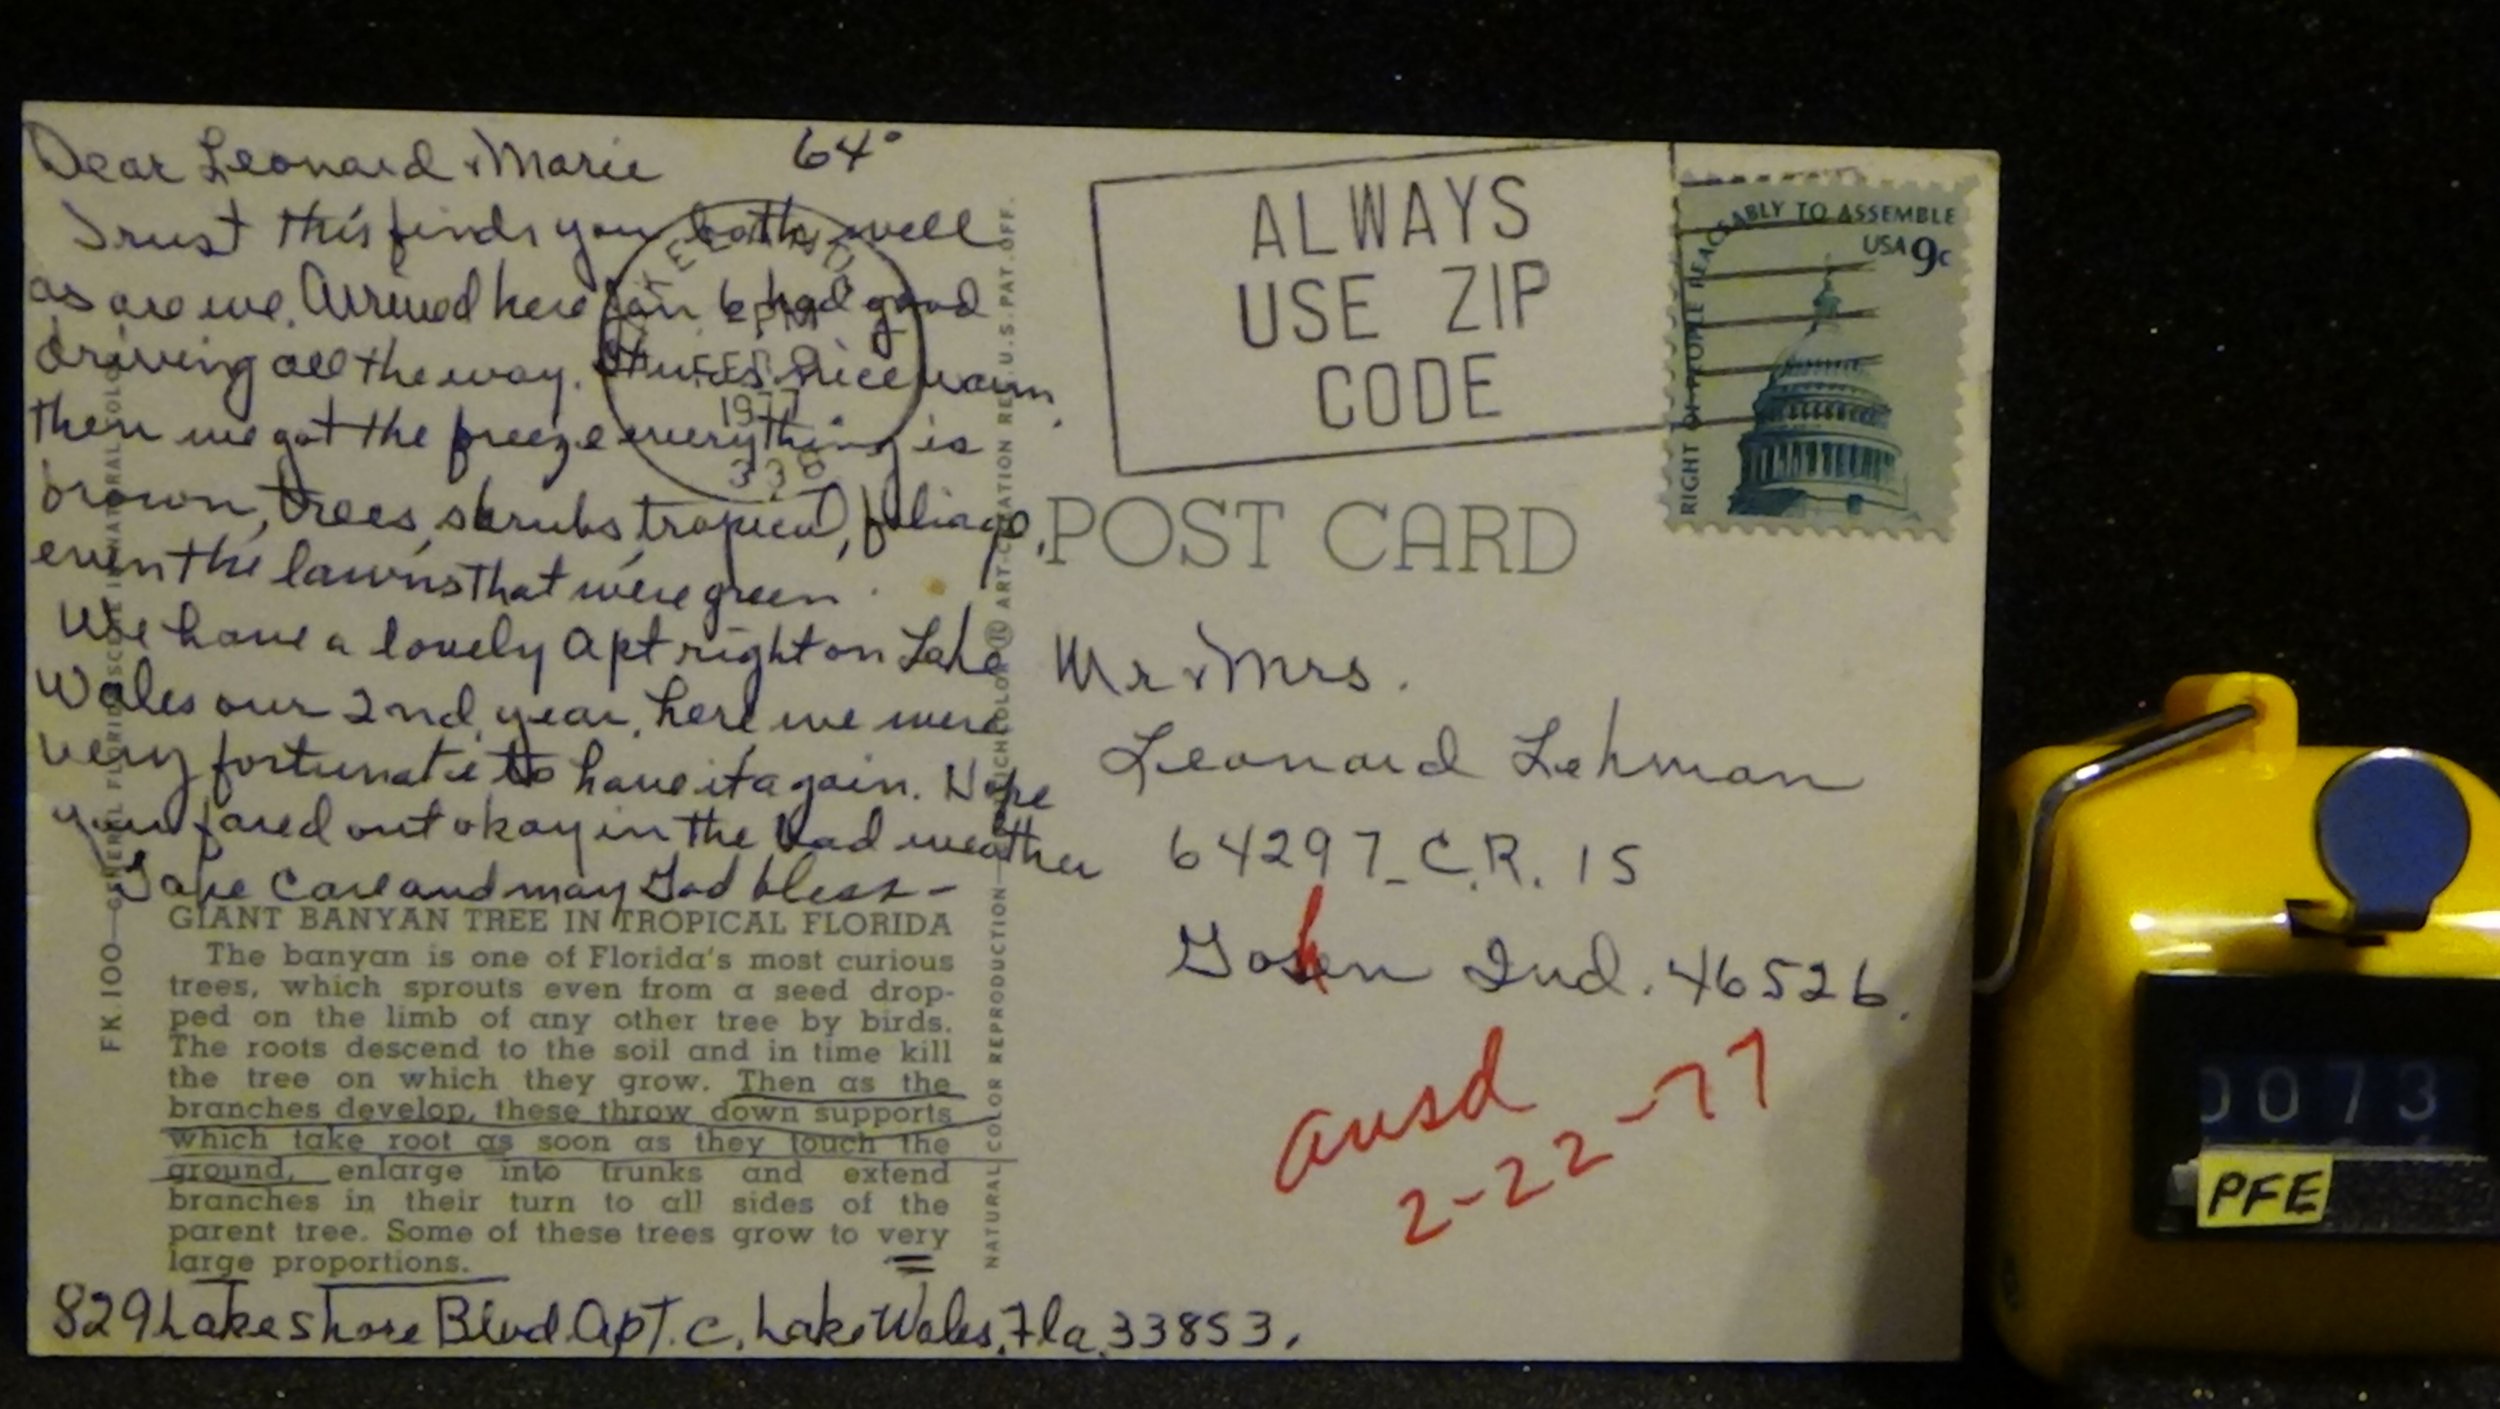 Dear Leonard & Marie 64°
Trust this finds you both well
as are we. Arrived here Jan 6 had good
driving all the way. It was nice warm,
then we got the freeze everything is
brown, trees, shrubs tropical, foliage,
even the lawns that were green.
We have a lovely Apt right on Lake
Wales our 2nd, year, here we were
very fortunate to have it again. Hope
you fared out okay in the bad weather
Take Care and may God bless-
GIANT BANYAN TREE IN TROPICAL FLORIDA
The banyan is one of Florida's most curious
trees, which sprouts even from a seed drop-
ped on the limb of any other tree by birds.
The roots descend to the soil and in time kill
the tree on which they grow. Then as the
branches develop, these throw down supports
which take root as soon as they touch the
ground, enlarge into trunks and extend
branches in their turn to all sides of the
parent tree. Some of these trees grow to very
large proportions.
829 Lake Shore Blvd. Apt. C, Lake Wales, Fla, 33853.
LAKELAND
PM
FEB
1977
338
ALWAYS
USE ZIP
CODE
RIGHT OF PEOPLE PEACEABLY TO ASSEMBLE
USA 9c
POST CARD
Mr & Mrs.
Leonard Lehman
64297 - C.R. 15
Goshen Ind. 46526.
ansd
2-22-77
NATURAL COLOR REPRODUCTION ART-CREATION REG. U.S. PAT. OFF.
FK.100—GENERAL FLORIDA IN NATURAL COLOR
0073
PFE